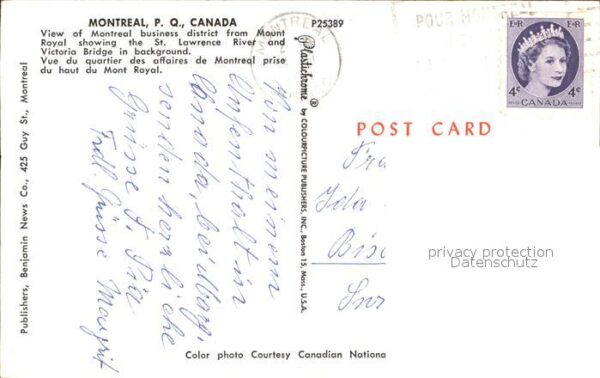 MONTREAL, P. Q., CANADA
View of Montreal business district from Mount
Royal showing the St. Lawrence River and
Victoria Bridge in background.
Vue du quartier des affaires de Montreal prise
du haut du Mont Royal.
P25389
MONTREAL
POUR
E·R E·R
4¢ CANADA 4¢
POST CARD
Publishers, Benjamin News Co., 425 Guy St., Montreal
Plastichrome ® by COLOURPICTURE PUBLISHERS, INC., Boston 15, Mass., U.S.A.
Von meinem
Aufenthalt in
Canada,
senden herzliche
Grüsse
Frdl. Grüsse Margrit
Fra
Ida
Bis
privacy protection
Datenschutz
Color photo Courtesy Canadian Nationa